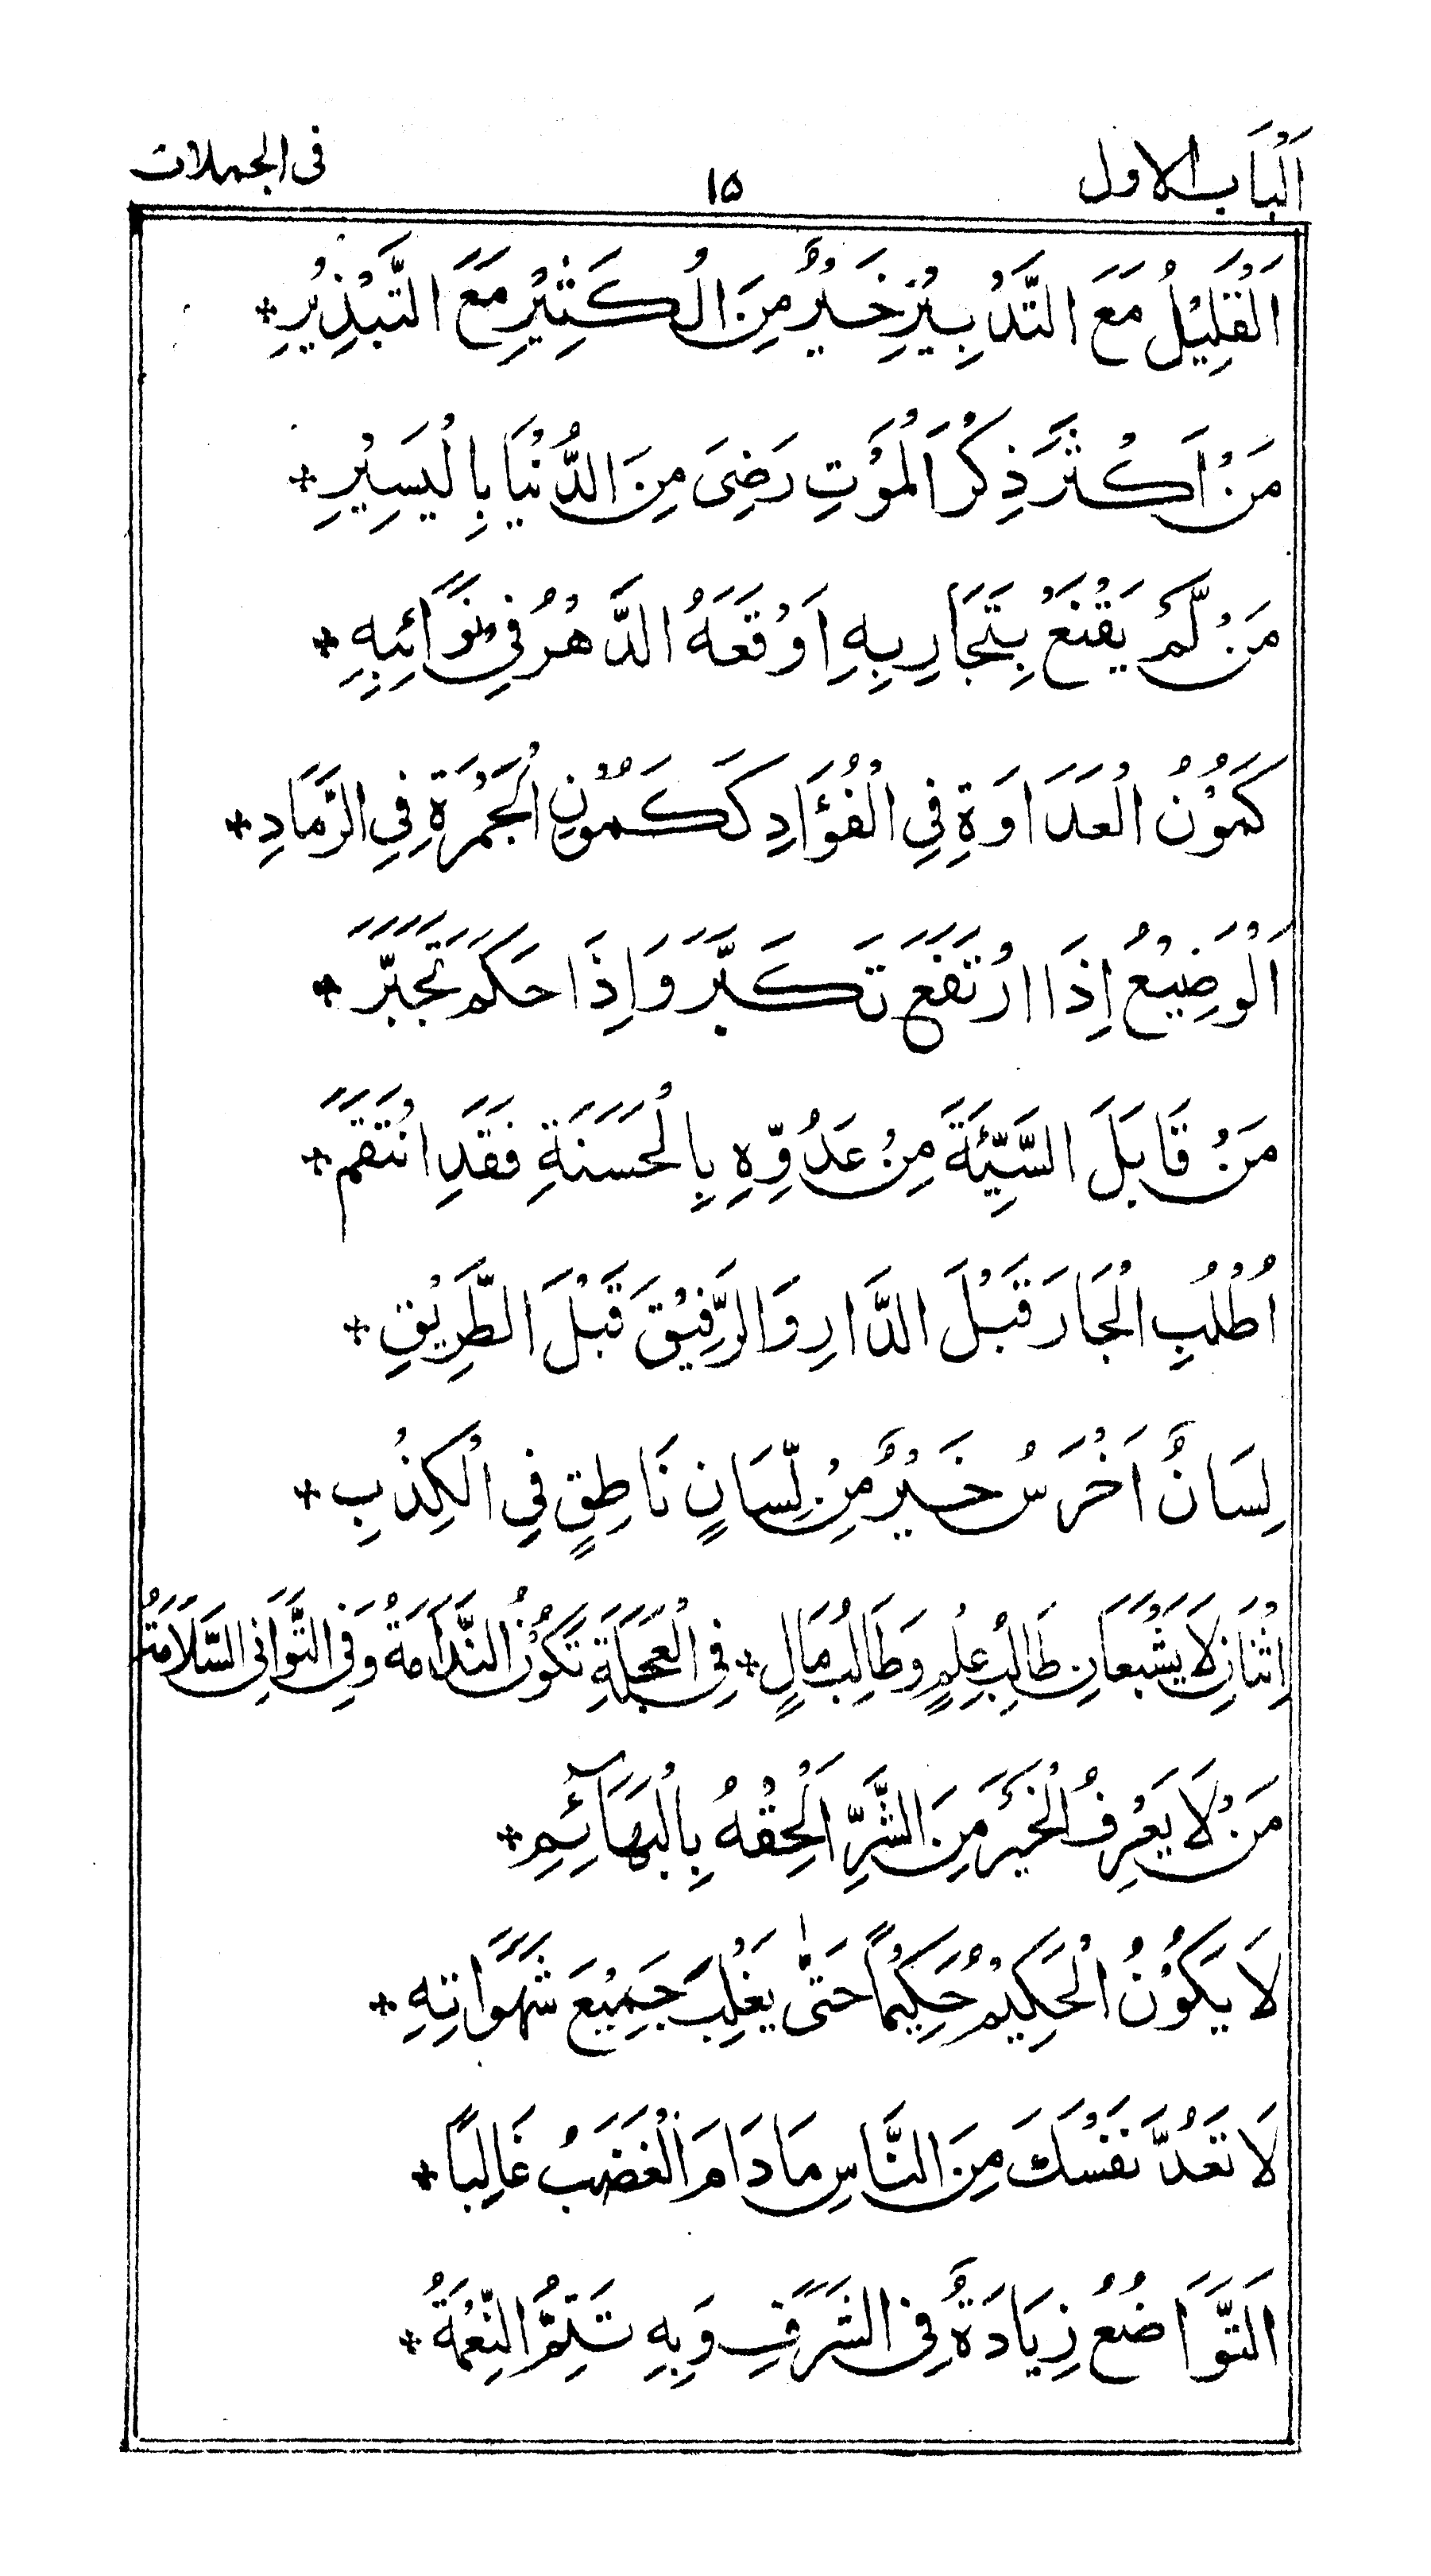 اَلْبَابُ الاول ١٥ فى الجملات
اَلْقَلِيْلُ مَعَ التَّدْبِيْرِ خَيْرٌ مِنَ الْكَثِيْرِ مَعَ التَّبْذِيْرِ +
مَنْ اَكْثَرَ ذِكْرَ الْمَوْتِ رَضِىَ مِنَ الدُّنْيَا بِالْيَسِيْرِ +
مَنْ لَّمْ يَقْنَعْ بِتَجَارِبِهِ اَوْقَعَهُ الدَّهْرُ فِىْ نَوَائِبِهِ +
كَمُوْنُ الْعَدَاوَةِ فِى الْفُؤَادِ كَكَمُوْنِ الْجَمْرَةِ فِى الرَّمَادِ +
اَلْوَضِيْعُ اِذَا ارْتَفَعَ تَكَبَّرَ وَاِذَا حَكَمَ تَجَبَّرَ +
مَنْ قَابَلَ السَّيِّئَةَ مِنْ عَدُوِّهِ بِالْحَسَنَةِ فَقَدِ انْتَقَمَ +
اُطْلُبِ الْجَارَ قَبْلَ الدَّارِ وَالرَّفِيْقَ قَبْلَ الطَّرِيْقِ +
لِسَانٌ اَخْرَسُ خَيْرٌ مِنْ لِّسَانٍ نَاطِقٍ فِى الْكِذْبِ +
اِثْنَانِ لَا يَشْبَعَانِ طَالِبُ عِلْمٍ وَطَالِبُ مَالٍ + فِى الْعَجَلَةِ تَكُوْنُ النَّدَامَةُ وَفِى التَّوَانِى السَّلَامَةُ
مَنْ لَا يَعْرِفُ الْخَيْرَ مِنَ الشَّرِّ اَلْحِقْهُ بِالْبَهَآئِمِ +
لَا يَكُوْنُ الْحَكِيْمُ حَكِيْمًا حَتّٰى يَغْلِبَ جَمِيْعَ شَهَوَاتِهِ +
لَا تَعُدَّ نَفْسَكَ مِنَ النَّاسِ مَا دَامَ الْغَضَبُ غَالِبًا +
اَلتَّوَاضُعُ زِيَادَةٌ فِى الشَّرَفِ وَبِهِ تَتِمُّ النِّعْمَةُ +